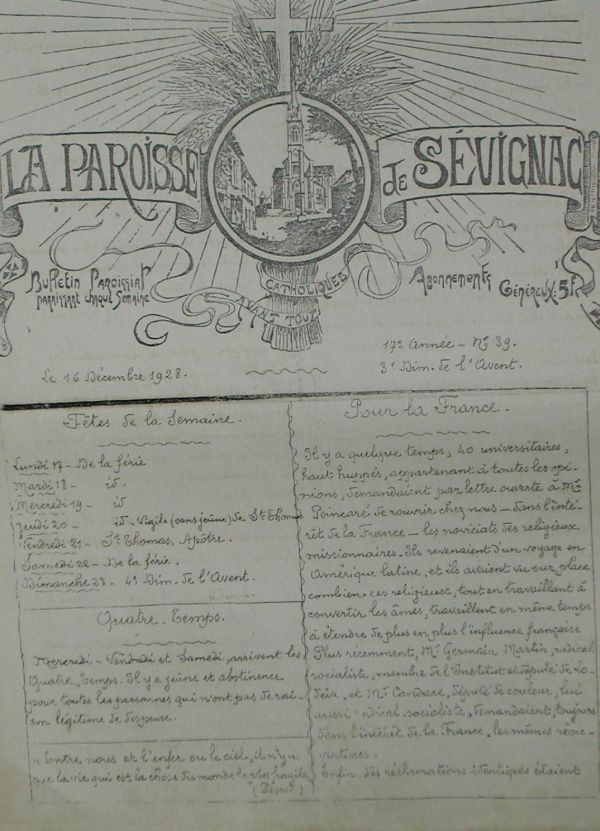 LA PAROISSE de SÉVIGNAC
Bulletin Paroissial
paraissant chaque Semaine
CATHOLIQUES
AVANT TOUT
Abonnements
Généreux: 5f
17e Année - No 39.
Le 16 Décembre 1928.
3e Dim. de l'Avent.
Fêtes de la Semaine.
Lundi 17 - De la férie
Mardi 18 - id.
Mercredi 19 - id
Jeudi 20 - id - Vigile (sans jeûne) de St Thomas
Vendredi 21 - St Thomas, Apôtre.
Samedi 22 - De la férie.
Dimanche 23 - 4e Dim. de l'Avent.
Quatre-Temps.
Mercredi - Vendredi et Samedi, arrivent les
Quatre-Temps. Il y a jeûne et abstinence
pour toutes les personnes qui n'ont pas de rai-
son légitime de dispense.
Entre nous et l'enfer ou le ciel, il n'y a
que la vie qui est la chose du monde la plus fragile
(Pascal)
Pour la France.
Il y a quelque temps, 40 universitaires,
haut huppés, appartenant à toutes les opi-
nions, demandaient par lettre ouverte à Mr
Poincaré de rouvrir chez nous - dans l'inté-
rêt de la France - les noviciats des religieux
missionnaires. Ils revenaient d'un voyage en
Amérique latine, et ils avaient vu sur place
combien ces religieux, tout en travaillant à
convertir les âmes, travaillent en même temps
à étendre de plus en plus l'influence française
Plus récemment, Mr Germain Martin, radical
socialiste, membre de l'Institut et député de Lo-
dève, et Mr Candace, député de couleur, lui
aussi socialiste, demandaient, toujours
dans l'intérêt de la France, les mêmes réou-
vertures.
Enfin, des réclamations identiques étaient